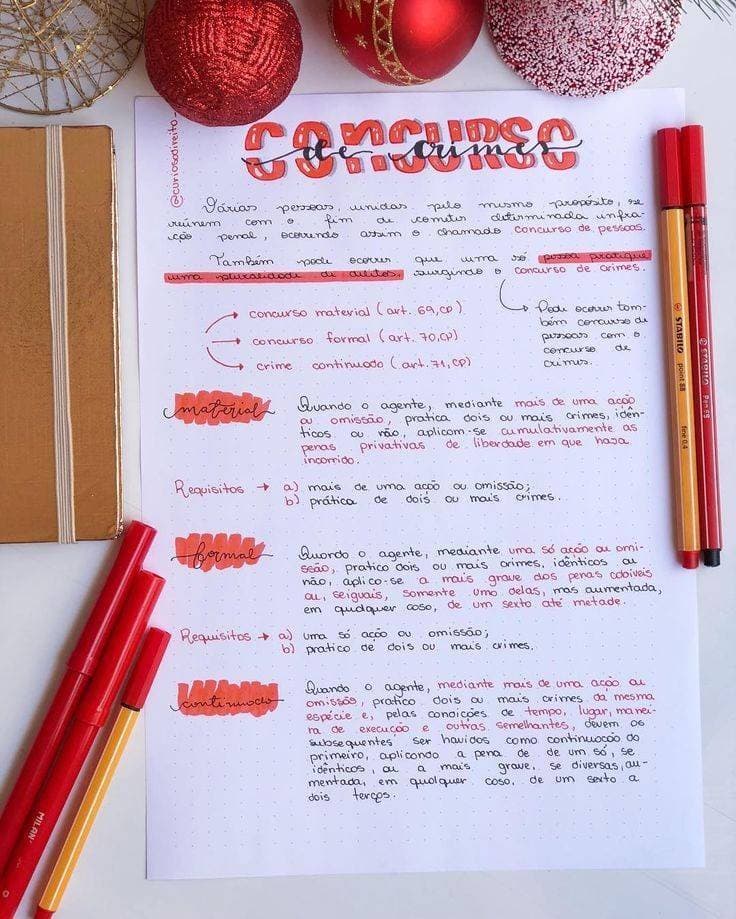 @curiosodireito_
CONCURSO
de crimes
Várias pessoas, unidas pelo mesmo propósito, se
reúnem com o fim de cometer determinada infra-
ção penal, ocorrendo assim o chamado concurso de pessoas.
Também pode ocorrer que uma só pessoa pratique
uma pluralidade de delitos, surgindo o concurso de crimes.
Pode ocorrer tam-
bém concurso de
pessoas com o
concurso de
crimes.
concurso material (art. 69, CP)
concurso formal (art. 70, CP)
crime continuado (art. 71, CP)
material
Quando o agente, mediante mais de uma ação
ou omissão, pratica dois ou mais crimes, idên-
ticos ou não, aplicam-se cumulativamente as
penas privativas de liberdade em que haja
incorrido.
Requisitos → a) mais de uma ação ou omissão;
b) prática de dois ou mais crimes.
formal
Quando o agente, mediante uma só ação ou omi-
ssão, pratica dois ou mais crimes, idênticos ou
não, aplica-se a mais grave das penas cabíveis
ou, se iguais, somente uma delas, mas aumentada,
em qualquer caso, de um sexto até metade.
Requisitos → a) uma só ação ou omissão;
b) pratica de dois ou mais crimes.
continuado
Quando o agente, mediante mais de uma ação ou
omissão, pratica dois ou mais crimes da mesma
espécie e, pelas condições de tempo, lugar, manei-
ra de execução e outras semelhantes, devem os
subsequentes ser havidos como continuação do
primeiro, aplicando a pena de de um só, se
idênticos, ou a mais grave, se diversas, au-
mentada, em qualquer caso, de um sexto a
dois terços.
STABILO
point 88
fine 0,4
STABILO
Pen 68
MILAN